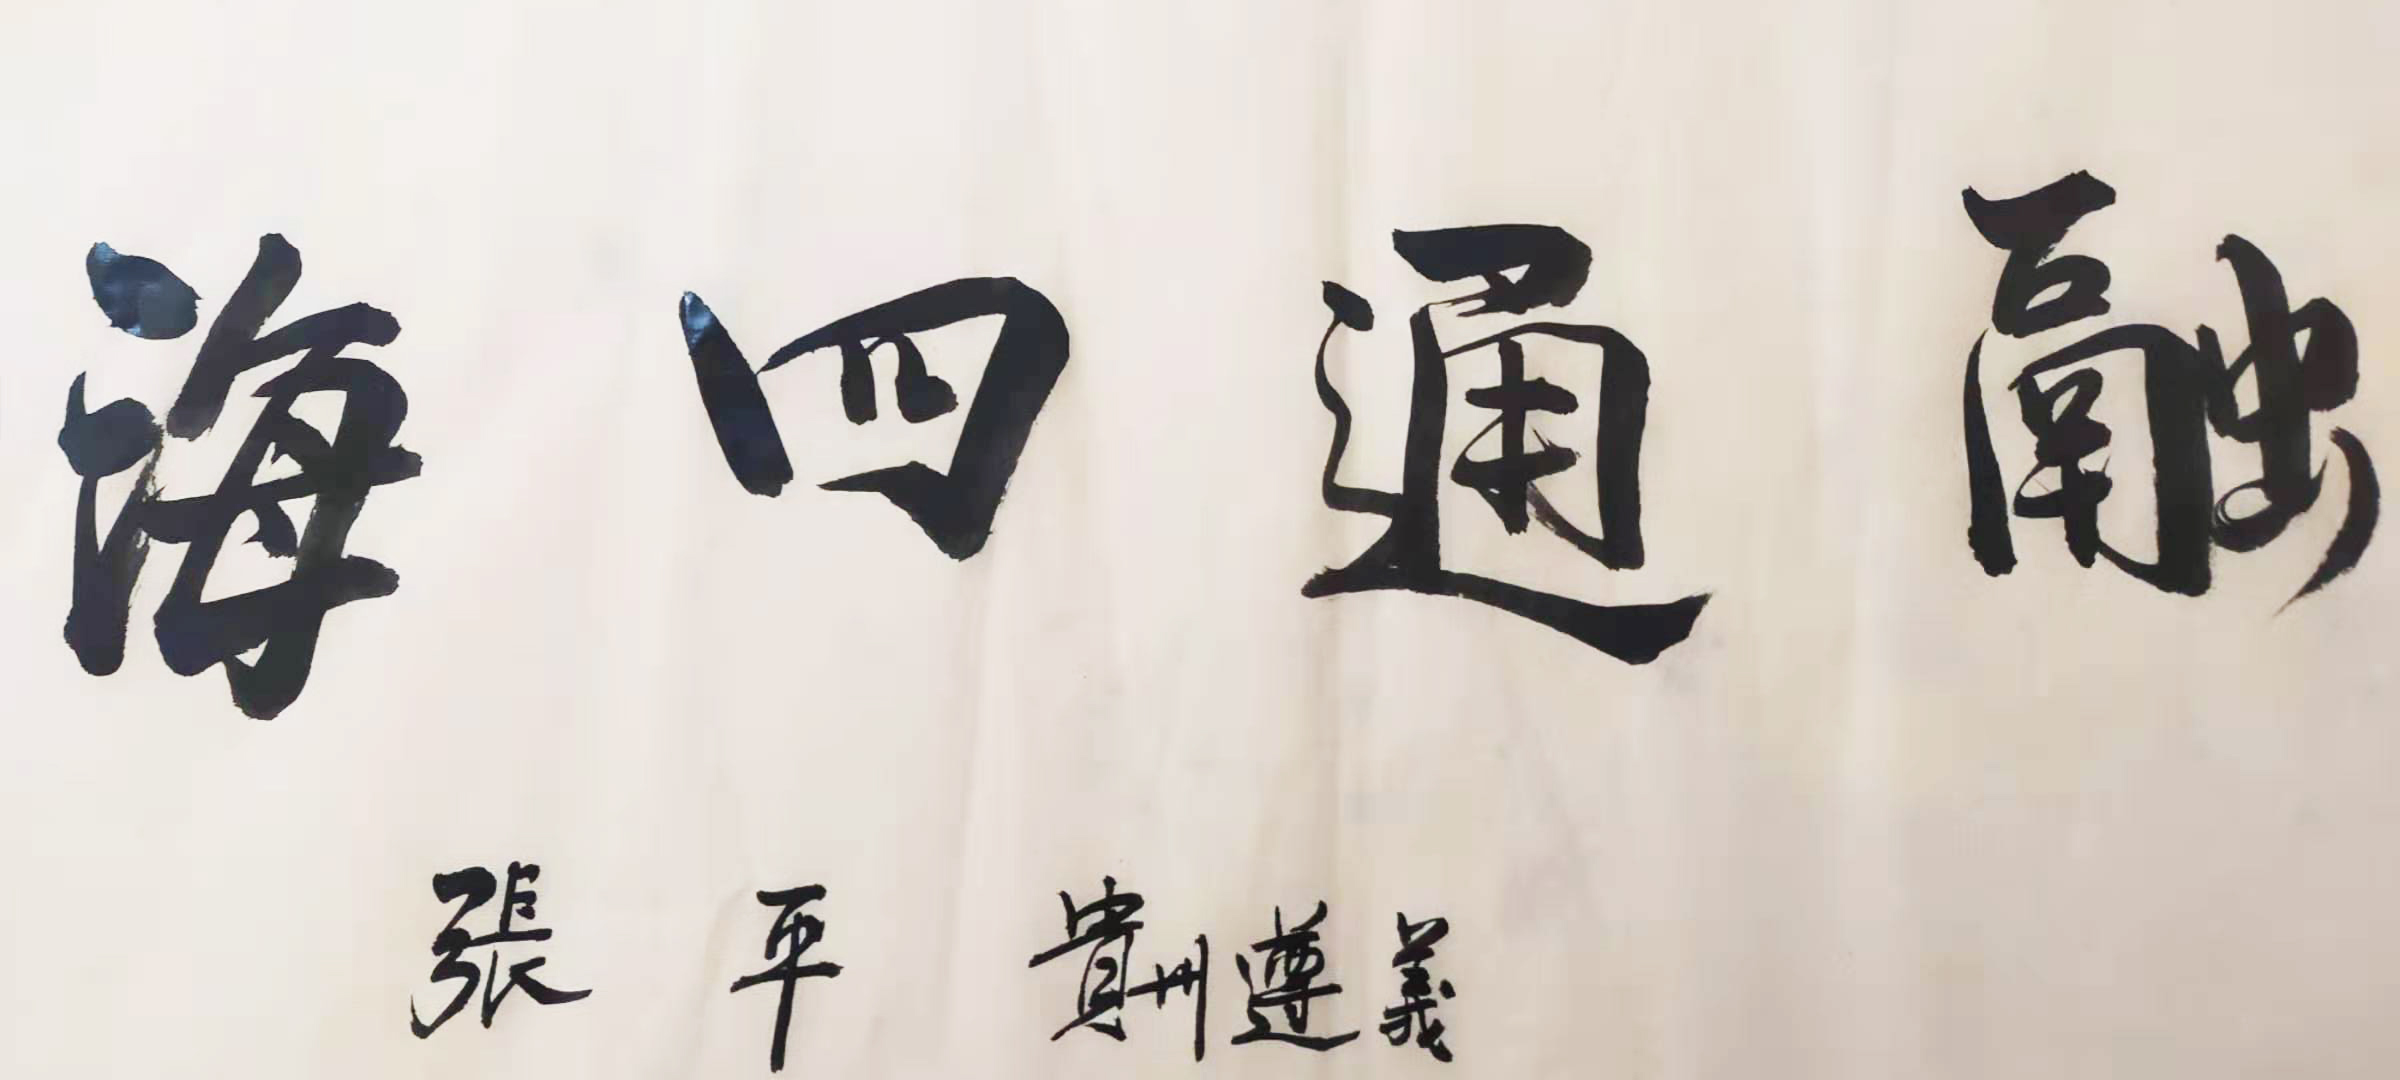 融通四海
張平 貴州遵義